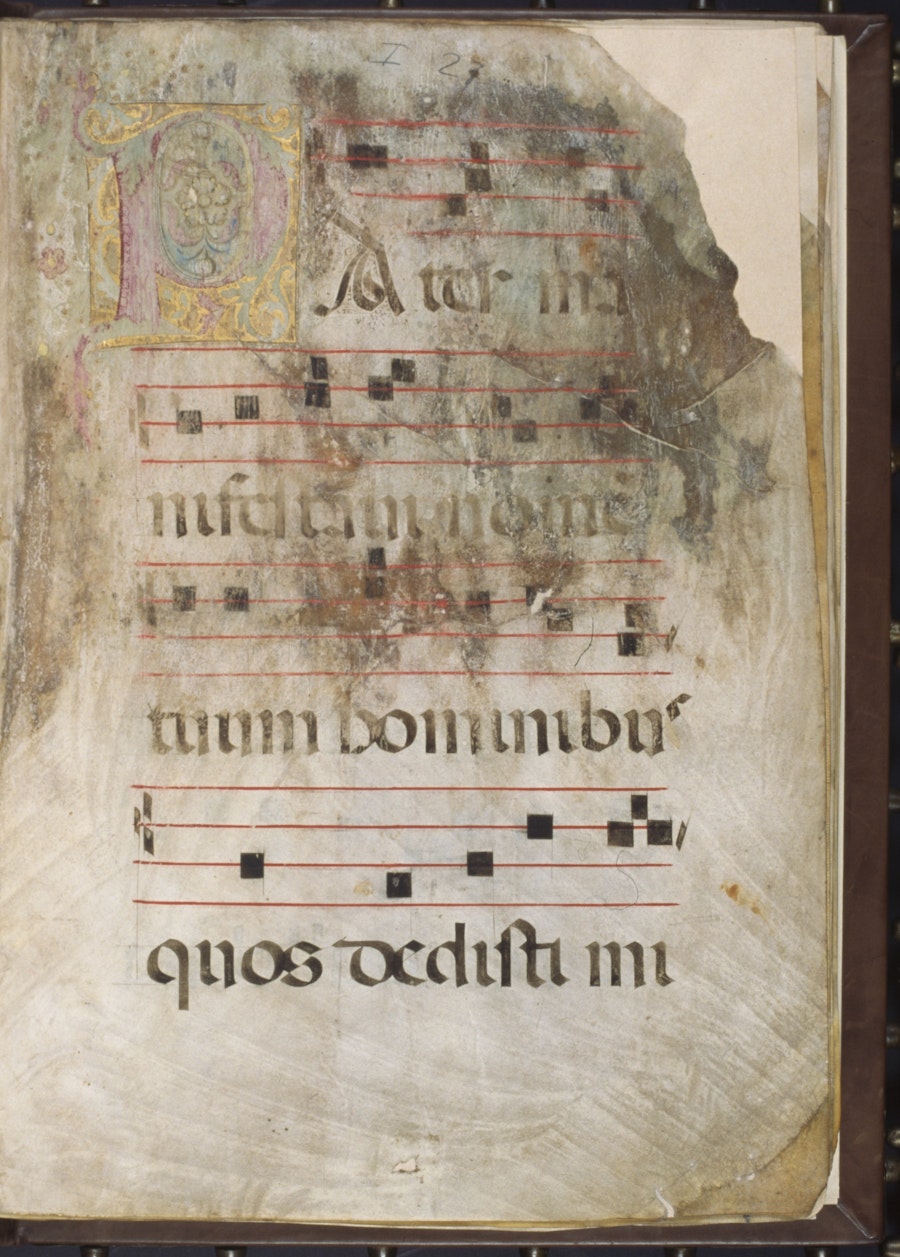 I 2
PAter ma
nifestavi nomē
tuum hominibus
quos dedisti mi